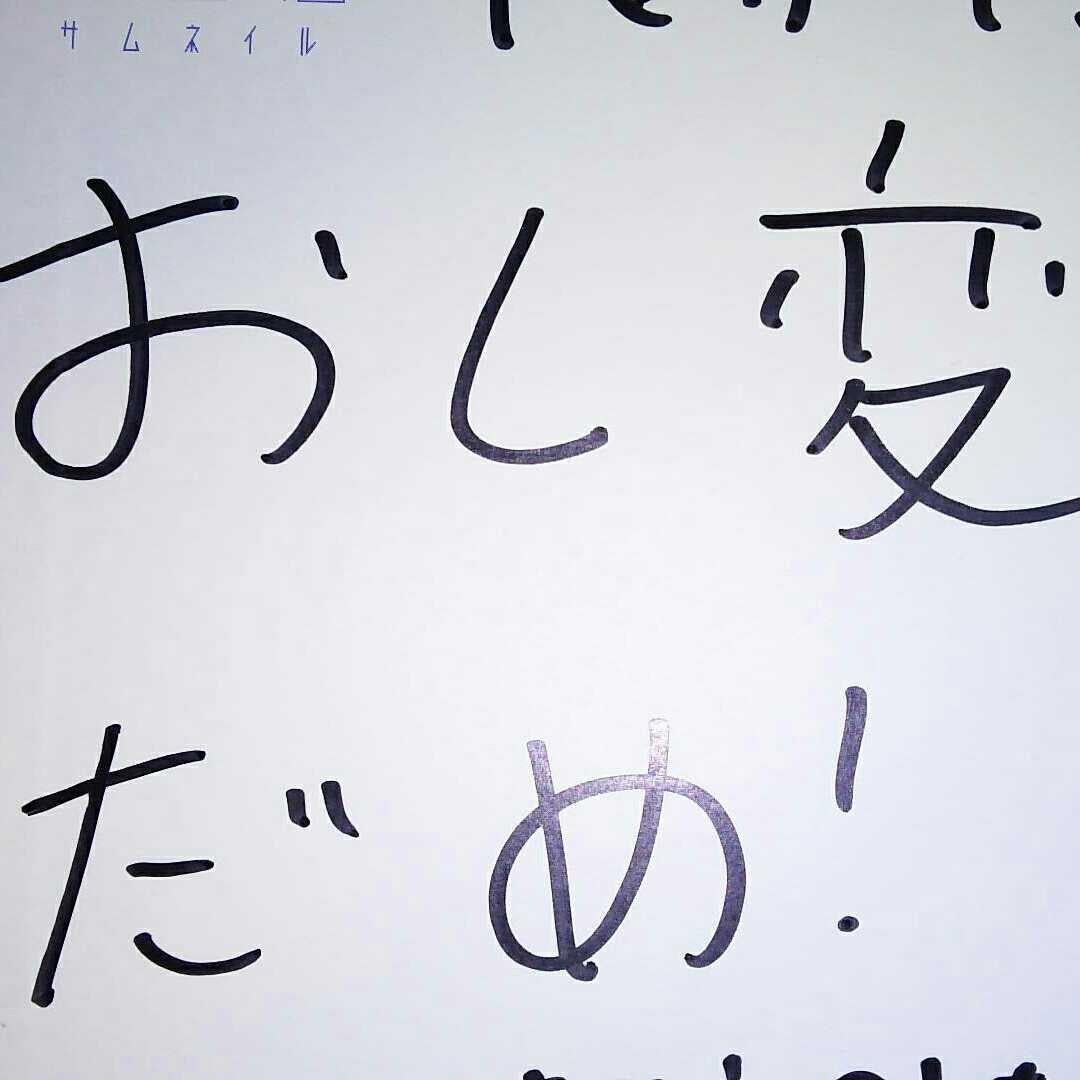 サムネイル
おし変
だめ!